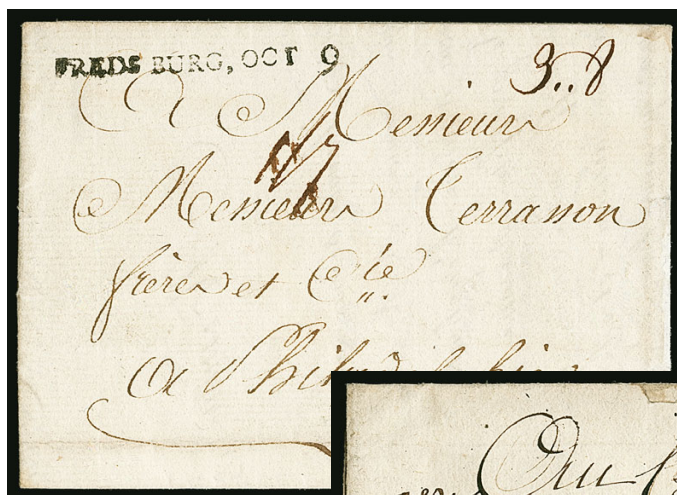 FREDSBURG, OCT 9
3..8
A Messieurs
Messieurs Terrasson
frères et Cie
a Philadelphie